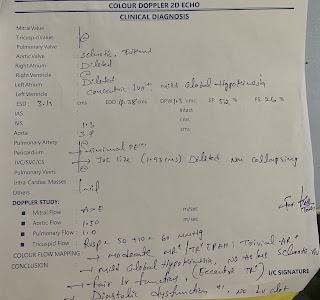 COLOUR DOPPLER 2D ECHO
CLINICAL DIAGNOSIS
Mitral Valve
Tricuspid Value
Pulmonary Valve
Aortic Valve Sclerotic,
Right Atrium Dilated
Right Ventricle
Left Atrium Dilated
Left Ventricle Concentric LVH+, mild Global Hypokinesia
ESD: cms EDD: cms EF: 52% FS: 26%
IAS Intact
IVS cms.
Aorta cms
Pulmonary Artery
Pericardium Minimal PE
IVC/SVC/CS IVC size (1.93 cms) Dilated Non collapsing
Pulmonary Veins
Intra-Cardiac Masses
Others
DOPPLER STUDY:
Mitral Flow A>E m/sec
Aortic Flow 1.50 m/sec
Pulmonary Flow 1.0
Tricuspid Flow : RVSP = 50 + 10 = 60 mmHg
COLOUR FLOW MAPPING Moderate MR+ TR+ PAH Trivial AR+
CONCLUSION mild Global Hypokinesia, No AS but Sclerotic AV
Fair LV function, (Eccentric TR+)
I/C SIGNATURE
Diastolic dysfunction +, No LV clot